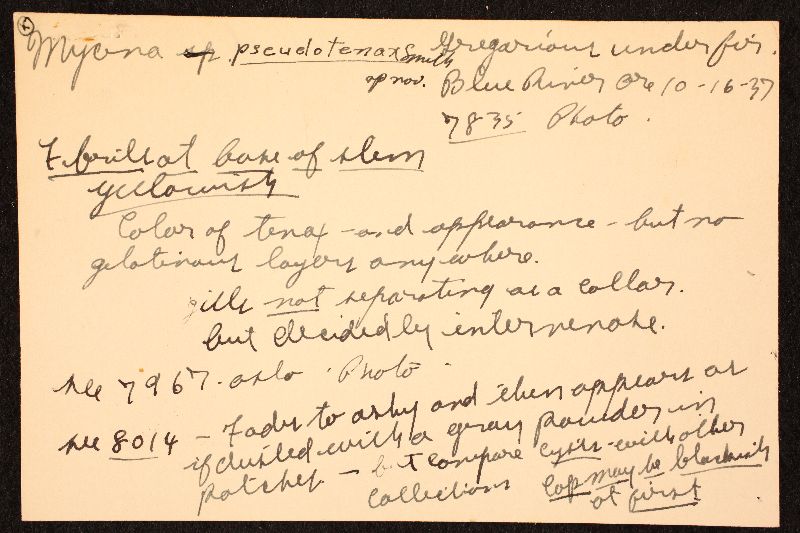 Mycena sp pseudotenax Smith
sp nov.
Gregarious under fir.
Blue River Ore 10-16-37
7835 Photo.
Fibrills at base of stem
yellowish
Color of tenax - and appearance - but no
gelatinous layers anywhere.
gills not separating as a collar.
but decidedly intervenose.
see 7967. also Photo
see 8014 - Fades to ashy and then appears as
if dusted with a gray powder in
patches - but compare cysts. with other
collections Cap may be blackish
at first